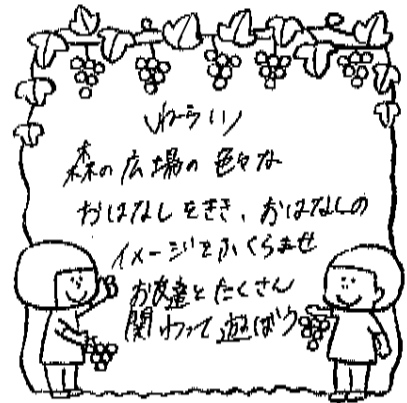 ＼ねらい／
森の広場の色々な
おはなしをきき、おはなしの
イメージをふくらませ
お友達とたくさん
関わって遊ぼう